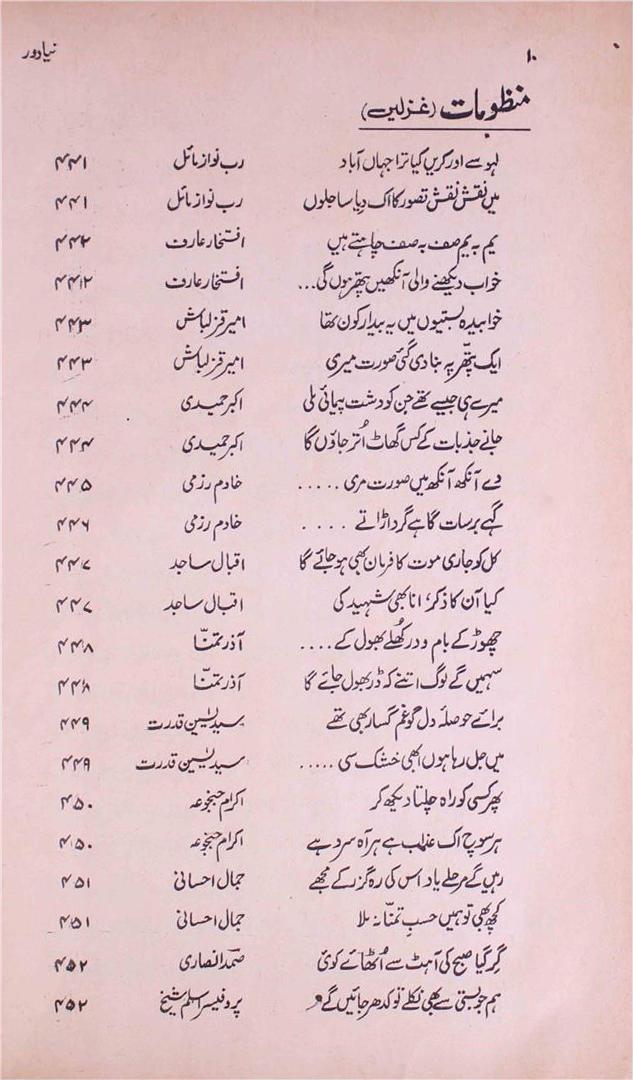 ۱۰ نیا دور
منظومات (غزلیں)
لہو سے اور کریں کیا ترا جہاں آباد رب نواز مائل ۴۴۱
میں نقش نقش تصور کا اک دیا سا جلوں رب نواز مائل ۴۴۱
یم بہ یم صف بہ صف چاہتے ہیں افتخار عارف ۴۴۲
خواب دیکھنے والی آنکھیں پتھر ہوں گی... افتخار عارف ۴۴۲
خوابیدہ بستیوں میں یہ بیدار کون تھا امیر قزلباش ۴۴۳
ایک پتھر پہ بنا دی گئی صورت میری امیر قزلباش ۴۴۳
میرے ہی جیسے تھے جن کو دشت پیمائی ملی اکبر حمیدی ۴۴۴
جانے جذبات کے کس گھاٹ اُتر جاؤں گا اکبر حمیدی ۴۴۴
دے آنکھ آنکھ میں صورت مری ..... خادم رزمی ۴۴۵
گہے برسات گاہے گرد اڑاتے .... خادم رزمی ۴۴۶
کل کو جاری موت کا فرمان بھی ہو جائے گا اقبال ساجد ۴۴۷
کیا آن کا ذکر، انا بھی شہید کی اقبال ساجد ۴۴۷
چھوڑ کے بام و در کھلے بھول کے .... آذر تمنّا ۴۴۸
سہمیں گے لوگ اتنے کہ ڈر بھول جائے گا آذر تمنّا ۴۴۸
برائے حوصلۂ دل گو غم گسار بھی تھے سید یٰسین قدرت ۴۴۹
میں جل رہا ہوں ابھی خشک سی ..... سید یٰسین قدرت ۴۴۹
پھر کسی کو راہ چلتا دیکھ کر اکرام جنجوعہ ۴۵۰
ہر سوچ اک عذاب ہے ہر آہ سرد ہے اکرام جنجوعہ ۴۵۰
رہیں گے مرحلے یاد اس کی رہ گزر کے مجھے جمال احسانی ۴۵۱
کچھ بھی تو ہمیں حسبِ تمنّا نہ ملا جمال احسانی ۴۵۱
گر گیا صبح کی آہٹ سے اُٹھائے کوئی صمد انصاری ۴۵۲
ہم جو بستی سے بھی نکلے تو کدھر جائیں گے پروفیسر اسلم شیخ ۴۵۲